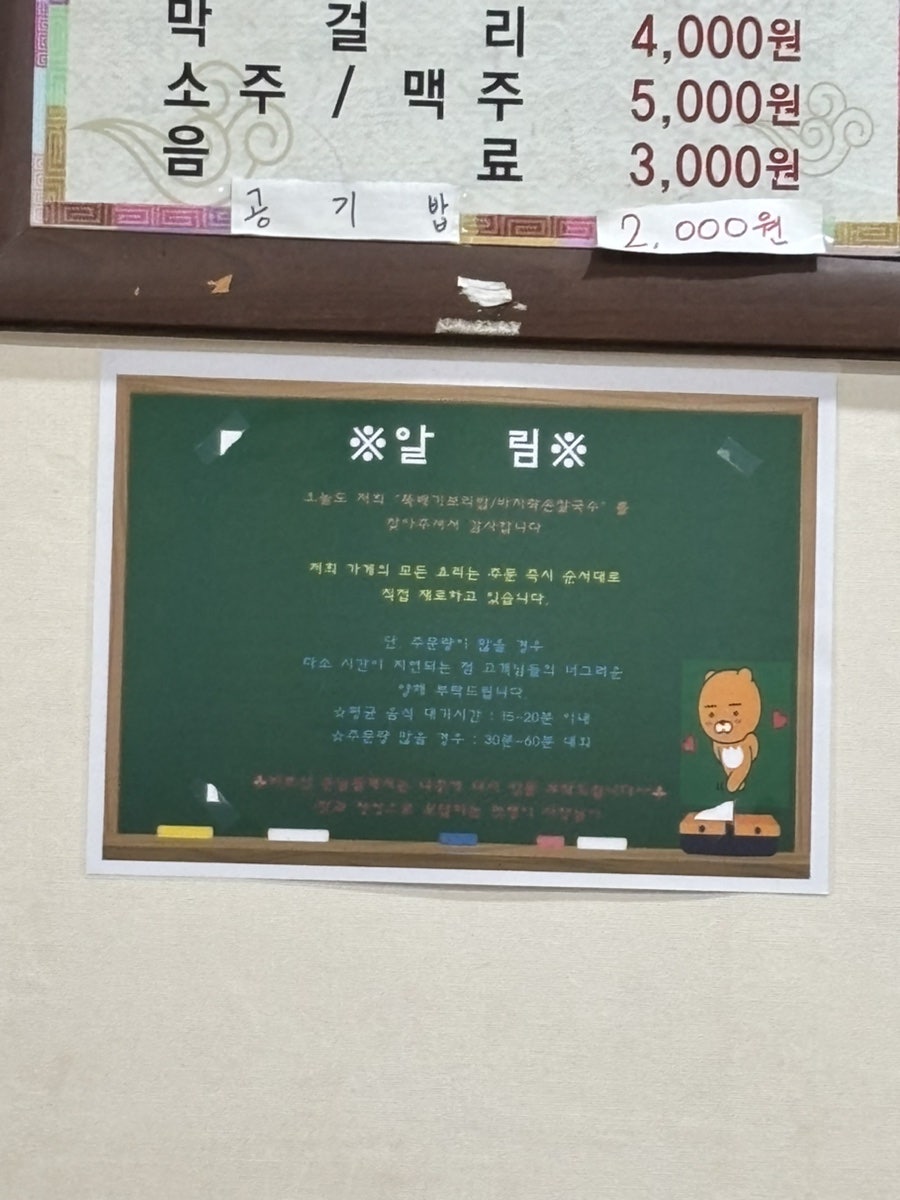 막 걸 리 4,000원
소 주 / 맥 주 5,000원
음 료 3,000원
공 기 밥 2,000원
※알 림※
오늘도 저희 "뚝배기보리밥/바지락손칼국수" 를
찾아주셔서 감사합니다
저희 가게의 모든 요리는 주문 즉시 순서대로
직접 재료하고 있습니다.
단, 주문량이 많을 경우
다소 시간이 지연되는 점 고객님들의 너그러운
양해 부탁드립니다.
☆평균 음식 대기시간 : 15~20분 이내
☆주문량 많을 경우 : 30분~60분 대외